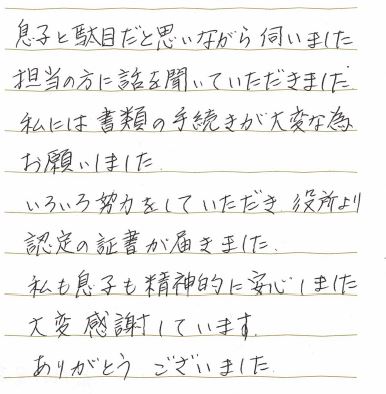 息子と駄目だと思いながら伺いました
担当の方に話を聞いていただきました.
私には書類の手続きが大変な為
お願いしました.
いろいろ努力をしていただき.役所より
認定の証書が届きました.
私も息子も精神的に安心しました
大変感謝しています.
ありがとう ございました.